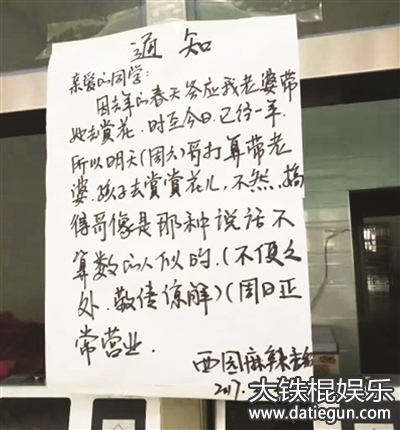 通知
亲爱的同学:
因去年的春天答应我老婆带
她去赏花.时至今日.已经一年.
所以明天(周六)哥打算带老
婆.孩子去赏赏花儿,不然,搞
得哥像是那种说话不
算数的人似的.(不便之
处.敬请谅解)(周日正
常营业.
西园麻辣香锅
2017.
大铁棍娱乐
www.datiegun.com